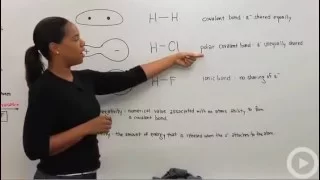 H—H covalent bond e⁻ shared equally
H—Cl polar covalent bond e⁻ unequally shared
H—F ionic bond no sharing of e⁻
numerical value associated with an atoms ability to form
a covalent bond
the amount of energy that is released when the e⁻ attaches to the atom